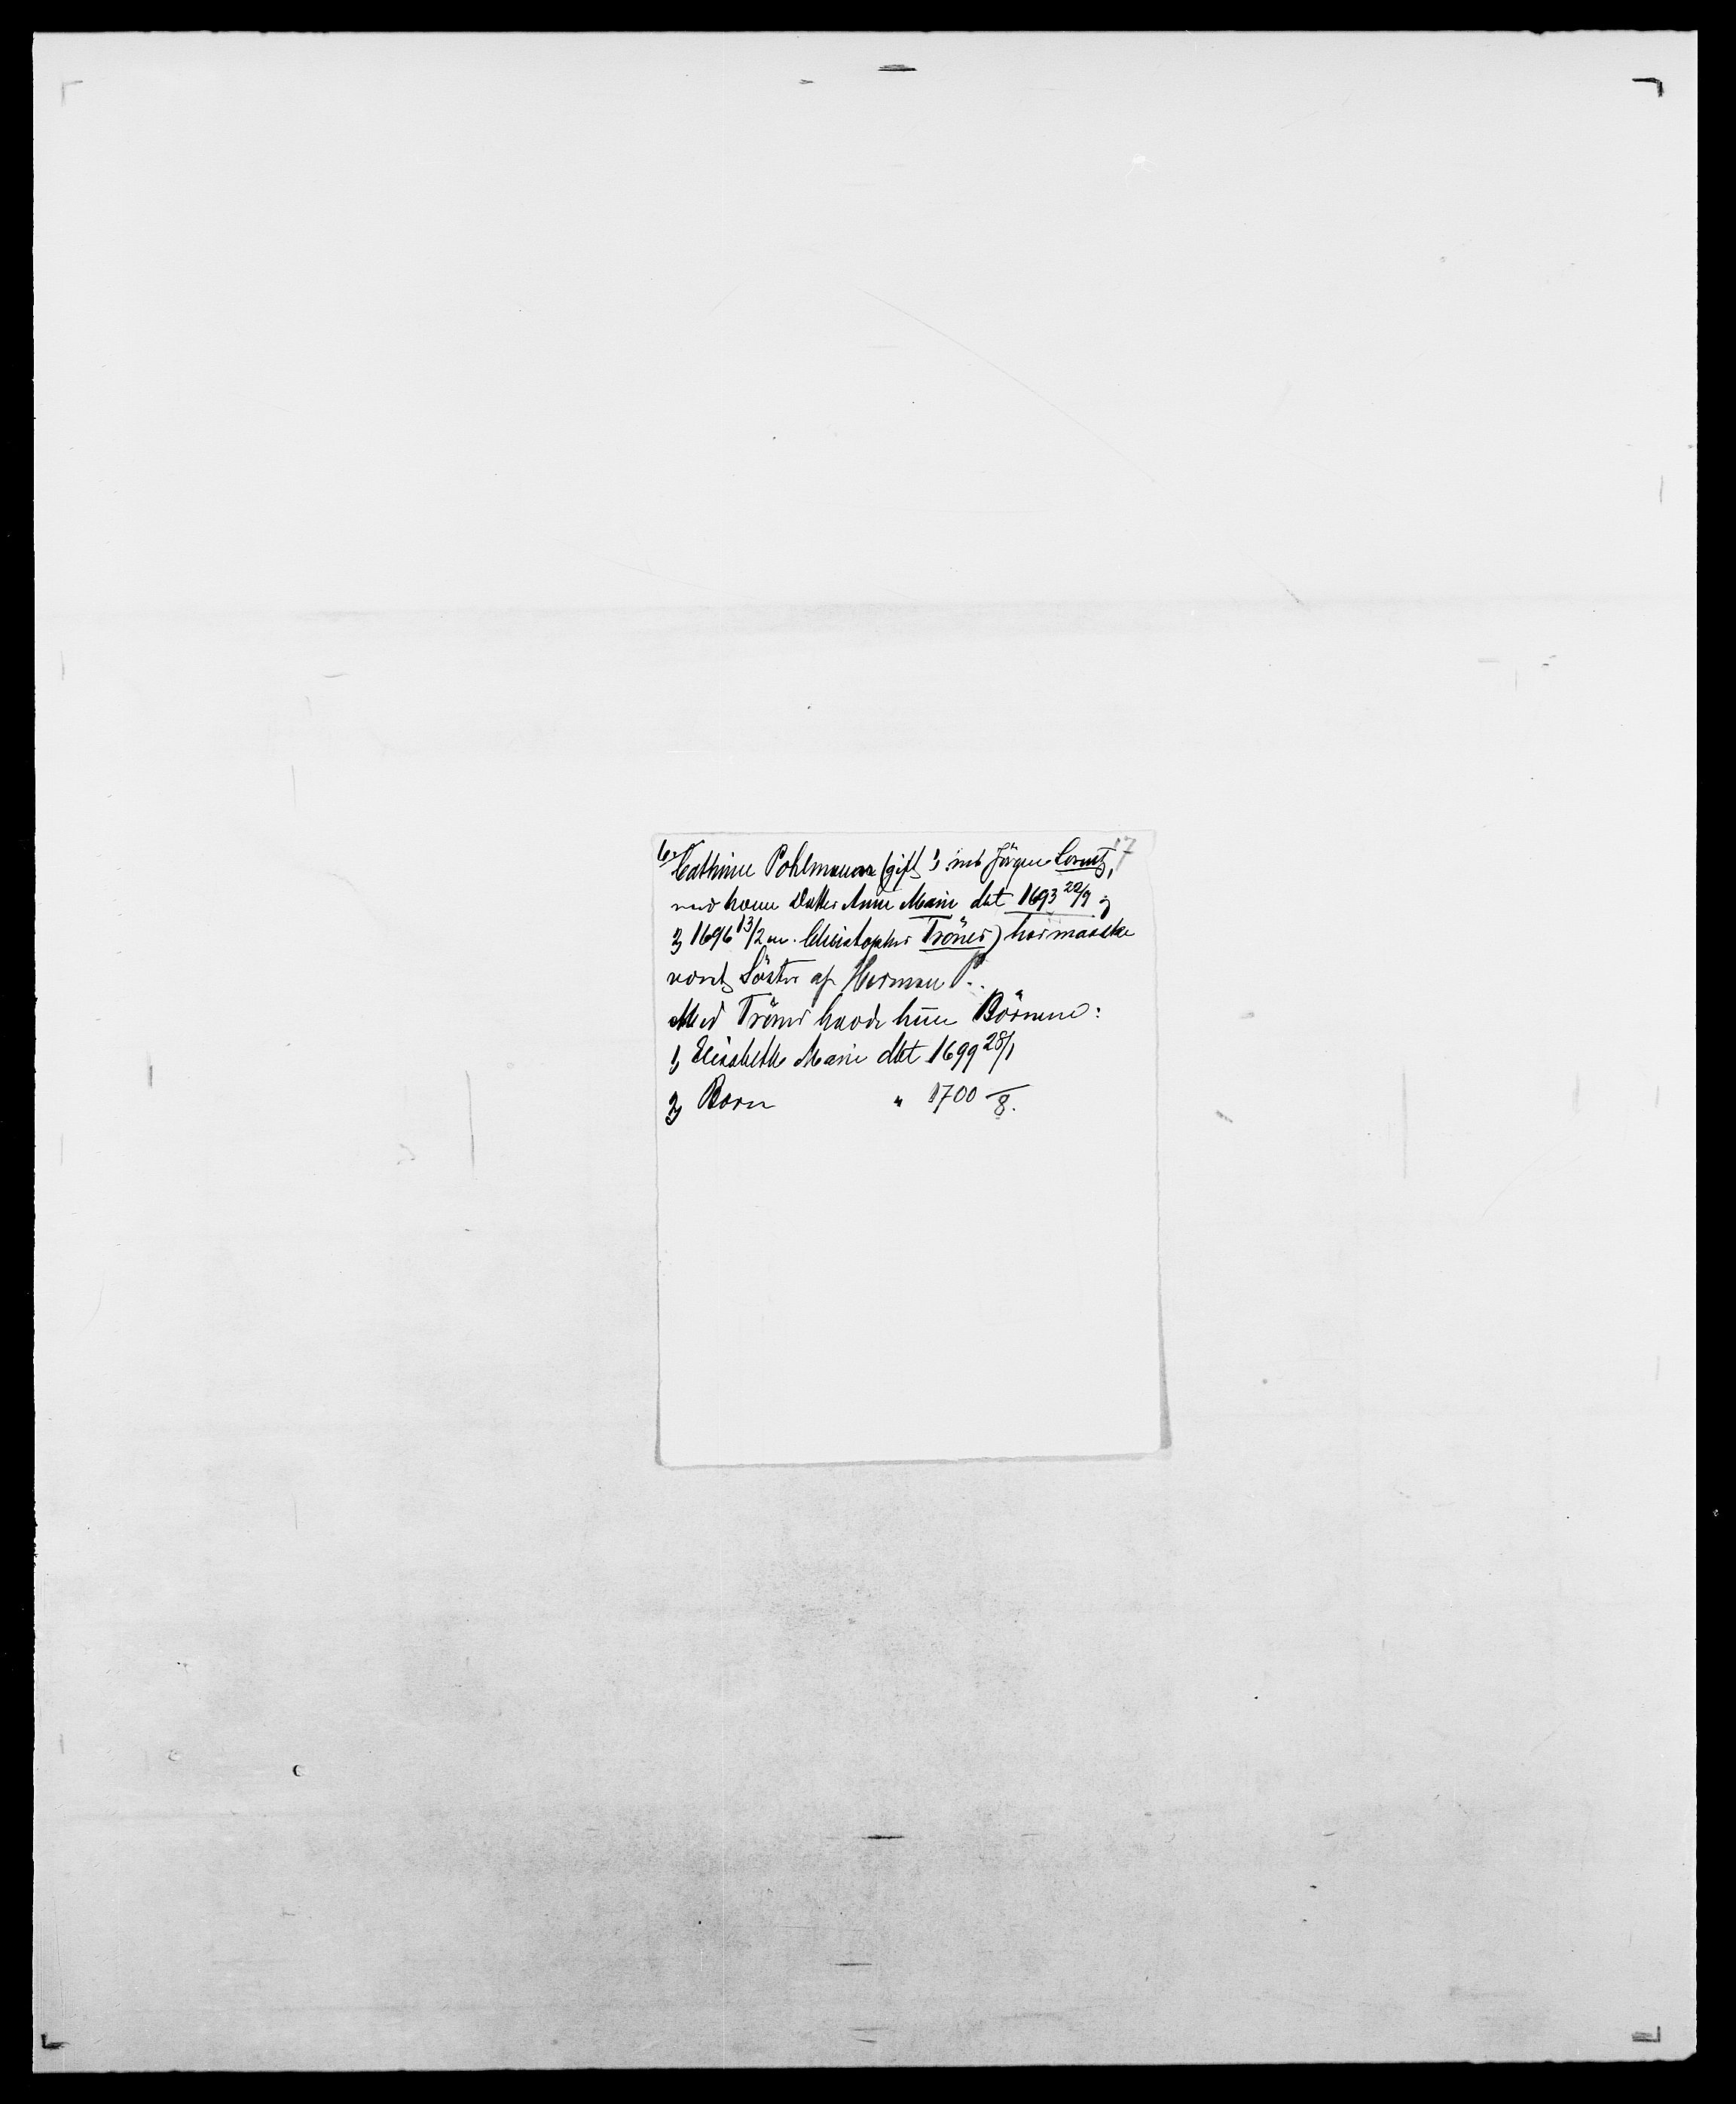 17
6) Cathrine Pohlmann (gift 1) med Jürgen Cornitz,
med ham Datter Anne Marie dbt 1693 20/9 og
2) 1696 13/2 m. Christopher Tröner) har maaske
været Søster af Herman P..
Med Tröner havde hun Börnene:
1) Elisabeth Marie dbt 1699 28/1
2) Barn " 1700 -/8.